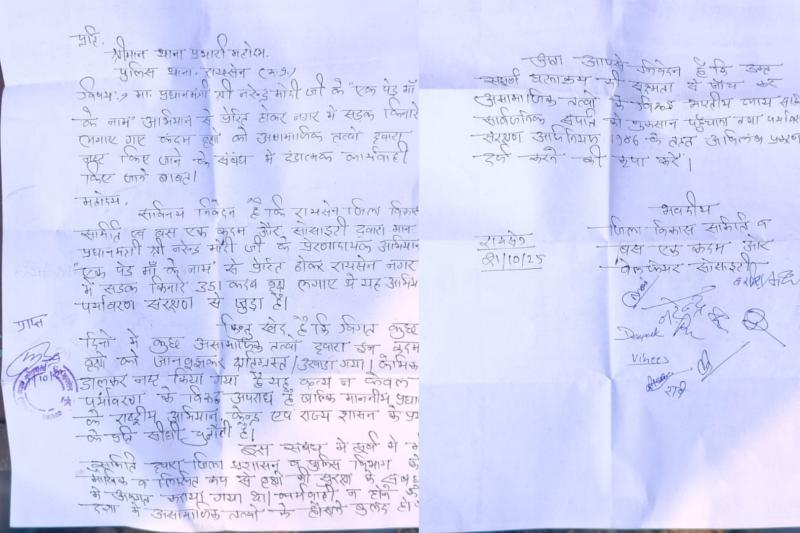 प्रति,
श्रीमान थाना प्रभारी महोदय,
पुलिस थाना, रायसेन (म.प्र.)
विषय:- मा. प्रधानमंत्री श्री नरेन्द्र मोदी जी के "एक पेड़ माँ
के नाम" अभियान से प्रेरित होकर नगर में सड़क किनारे
लगाए गए कदम वृक्षों को असामाजिक तत्वों द्वारा
नष्ट किए जाने के संबंध में दंडात्मक कार्यवाही
किए जाने बाबत।
महोदय,
सविनय निवेदन है कि रायसेन जिला विकास
समिति एवं बस एक कदम और सोसाइटी द्वारा मान.
प्रधानमंत्री श्री नरेन्द्र मोदी जी के प्रेरणादायक अभियान
"एक पेड़ माँ के नाम" से प्रेरित होकर रायसेन नगर
में सड़क किनारे 351 कदम वृक्ष लगाए थे यह अभि
पर्यावरण संरक्षण से जुड़ा है।
किन्तु खेद है कि विगत कुछ
दिनों में कुछ असामाजिक तत्वों द्वारा इन कदम
वृक्षों को जानबूझकर क्षतिग्रस्त / उखाड़ा गया। केमिक
डालकर नष्ट किया गया है यह कृत्य न केवल
पर्यावरण के विरुद्ध अपराध है बल्कि माननीय प्रधा
के राष्ट्रीय अभियान, केन्द्र एवं राज्य शासन के प्र
के प्रति सीधी चुनौती है।
इस संबंध में पूर्व में
समिति द्वारा जिला प्रशासन व पुलिस विभाग को
मौखिक व लिखित रूप से वृक्षों की सुरक्षा के संबं
में अवगत कराया गया था। कार्यवाही न होने की
दशा में असामाजिक तत्वों के हौसले बुलंद हो
प्राप्त
अतः आपसे निवेदन है कि उक्त
संपूर्ण घटनाक्रम की सूक्ष्मता से जाँच कर
असामाजिक तत्वों के विरुद्ध भारतीय न्याय संहि
सार्वजनिक संपत्ति को नुकसान पहुंचाने तथा पर्याव
संरक्षण अधिनियम 1986 के तहत आपराधिक प्रकरण
दर्ज करने की कृपा करें।
भवदीय
जिला विकास समिति व
बस एक कदम और
वेलफेयर सोसाइटी
रायसेन
21/10/25
नरेन्द्र
Deepak
Vibees
रवि